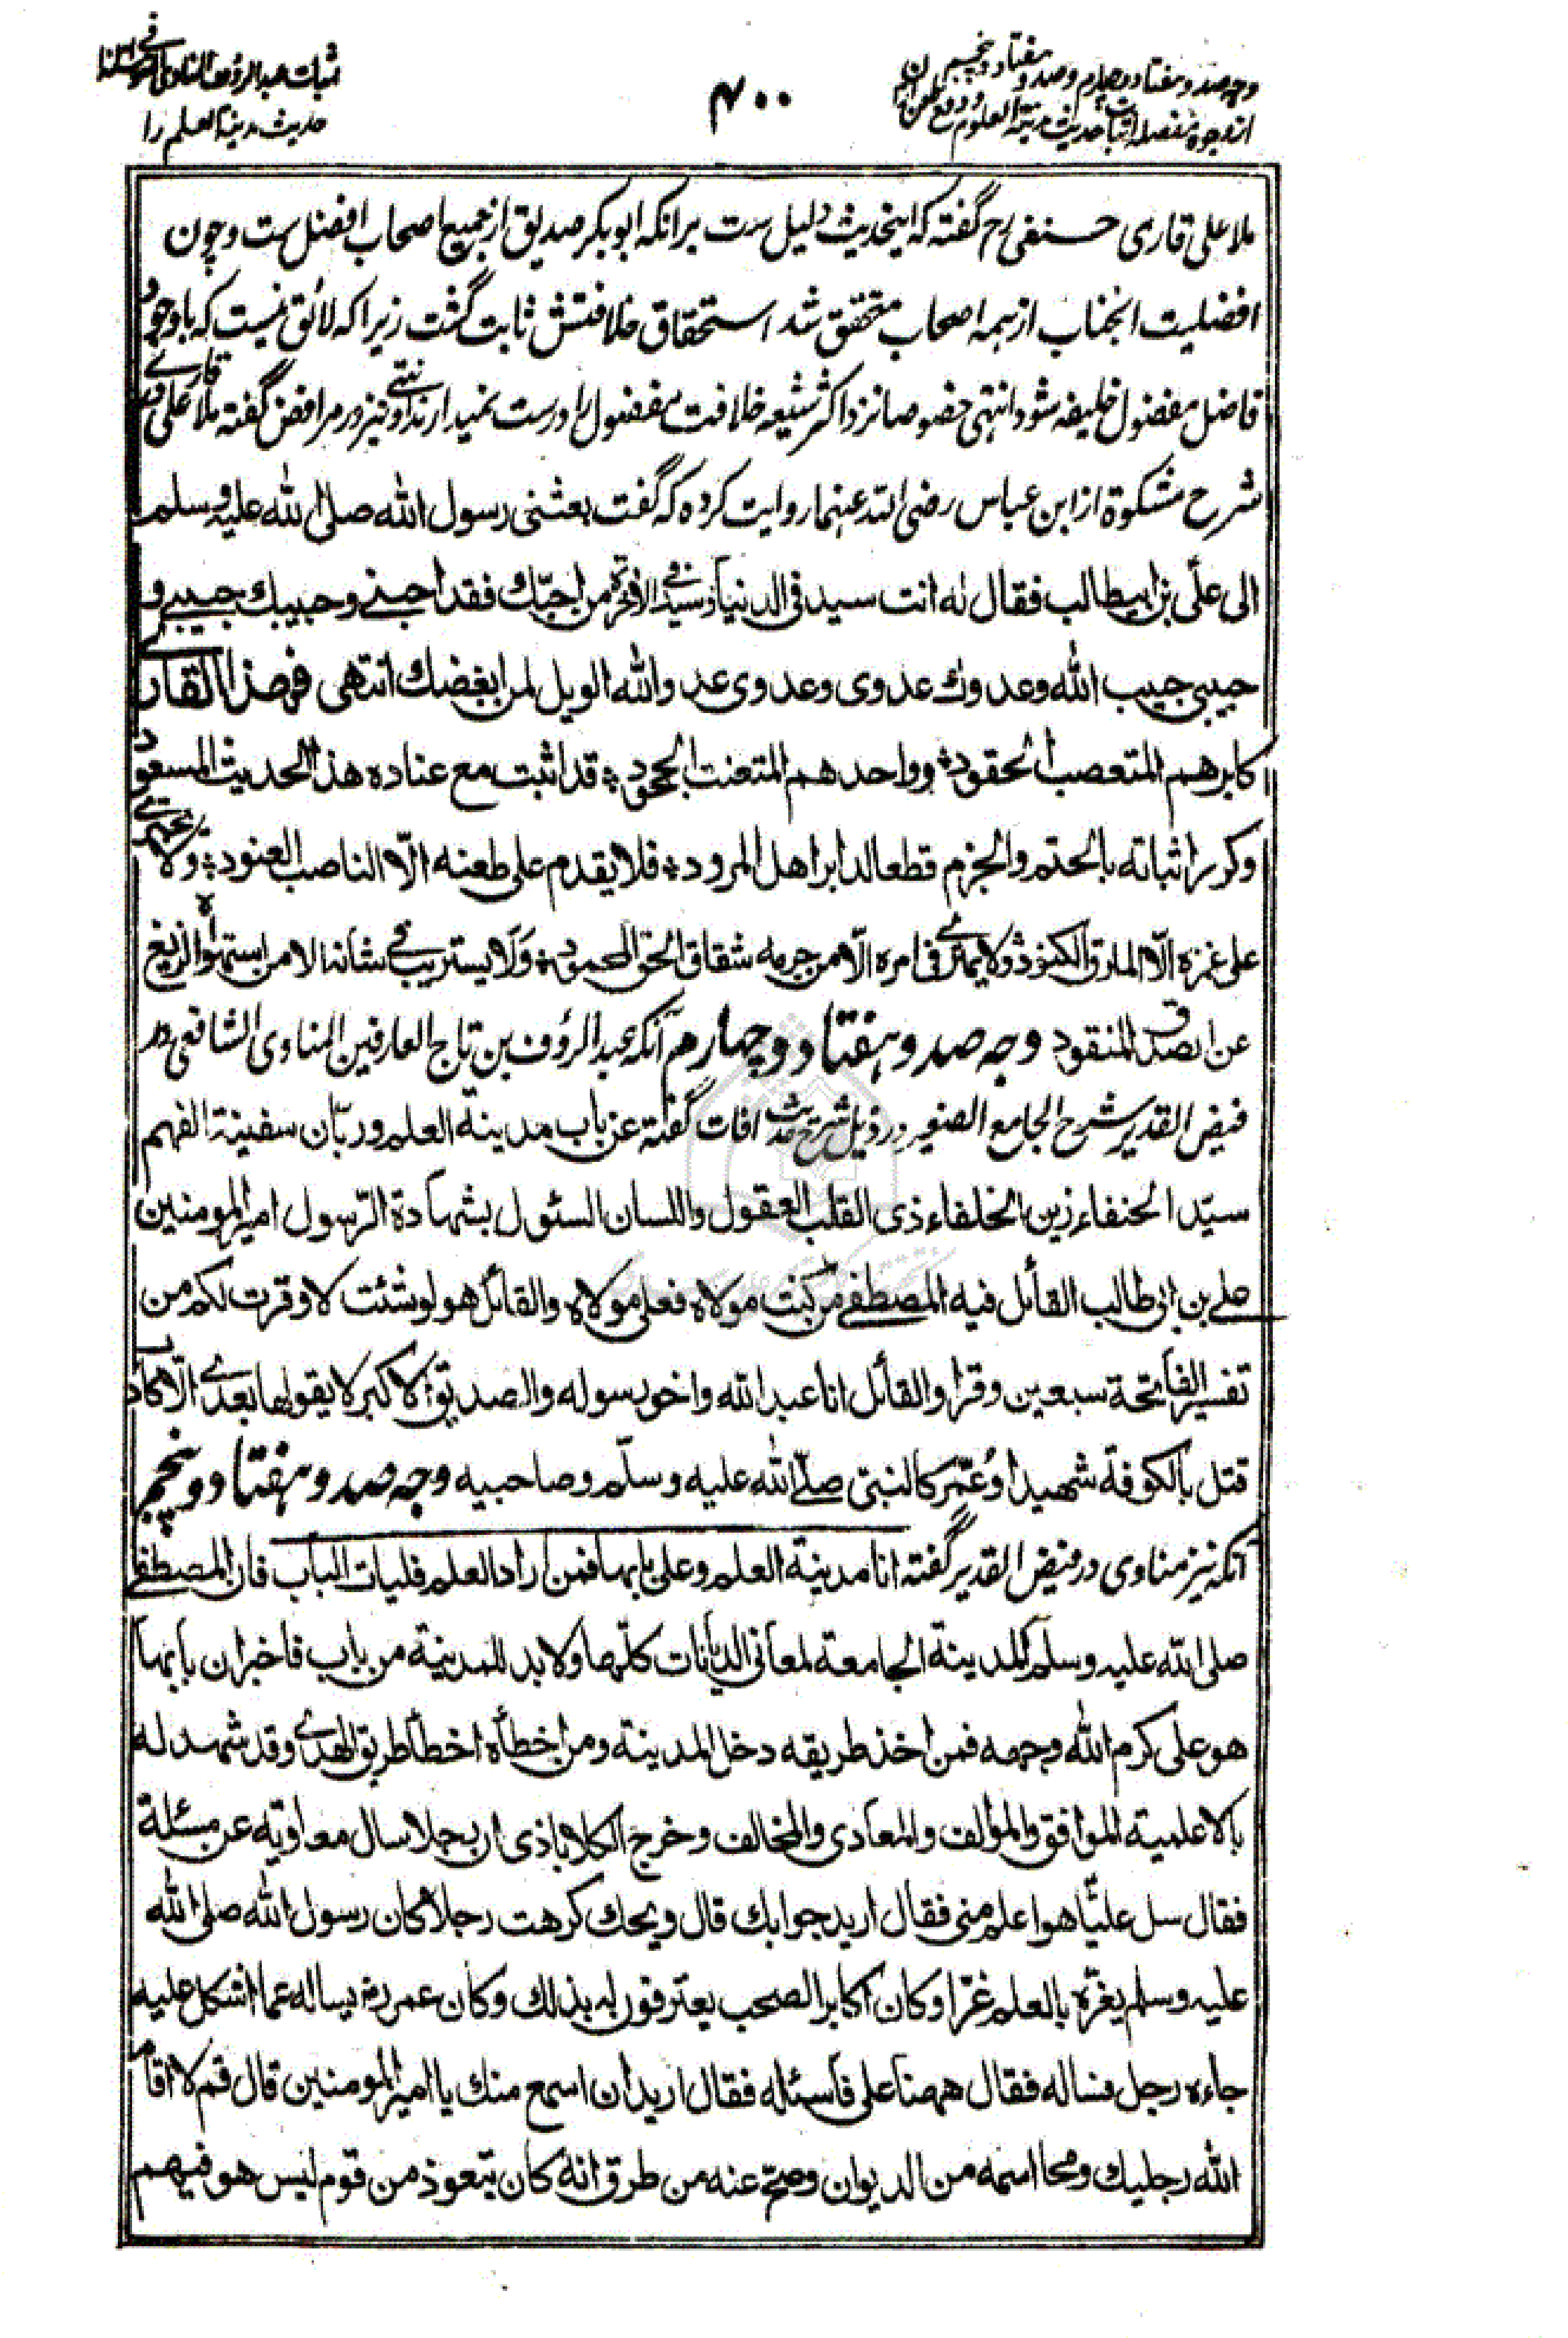 وجه صد و هفتاد و چهارم و صد و هفتاد و پنجم
از وجوه مفصله اثبات حدیث مدینة العلم و دفع طعن ان
۴۰۰
اثبات عبد الرؤف المناوی
حدیث مدینة العلم را
ملا علی قاری حنفی رح گفته که اینحدیث دلیل ست برانکه ابو بکر صدیق از جمیع اصحاب افضل ست و چون
افضلیت انجناب از همه اصحاب متحقق شد استحقاق خلافتش ثابت گشت زیرا که لائق نیست که باوجود
فاضل مفضول خلیفه شود انتهی خصوصا نزد اکثر شیعه خلافت مفضول را درست نمیدارند انتهی و نیز در مرافض گفته ملا علی قاری در
شرح مشکوة از ابن عباس رضی الله عنهما روایت کرده که گفت بعثنی رسول الله صلی الله علیه و سلم
الی علی بن ابیطالب فقال له انت سید فی الدنیا و سید فی الاخرة من احبّك فقد احبنی و حبیبك حبیبی و
حبیبی حبیب الله و عدوك عدوی و عدوی عدو الله الویل لمن ابغضك انتهی فهذا القاری
کابرهم المتعصب الحقود و واحدهم المتعنت الجحود قد اثبت مع عناده هذا الحدیث المسعود
و کرر اثباته بالحتم و الجزم قطعا لدابر اهل المرود فلا یقدم علی طعنه الّا الناصب العنود و لا یجتری
علی غمزه الّا المارق الکنود و لا یمتری فی امره الّا من جرمه شقاق الحق المحمود و لا یستریب فی شانه الا من استهواه الزیغ
عن الصدق المنقود وجه صد و هفتاد و چهارم آنکه عبد الرؤف بن تاج العارفین المناوی الشافعی در
فیض القدیر شرح الجامع الصغیر در ذیل شرح حدیث افات گفته عن باب مدینة العلم و ربّان سفینة الفهم
سیّد الحنفاء زین الخلفاء ذی القلب العقول و اللسان السئول بشهادة الرّسول امیر المومنین
علی بن ابی طالب القائل فیه المصطفی من کنت مولاه فعلی مولاه و القائل هو لو شئت لاوقرت لکم من
تفسیر الفاتحة سبعین وقرا و القائل انا عبد الله و اخو رسوله و الصدیق الاکبر لا یقولها بعدی الّا کاذب
قتل بالکوفة شهیدا و عُمّر کالنبی صلّی الله علیه و سلّم و صاحبیه وجه صد و هفتاد و پنجم
آنکه نیز مناوی در فیض القدیر گفته انا مدینة العلم و علی بابها فمن اراد العلم فلیات الباب فان المصطفی
صلی الله علیه و سلم المدینة الجامعة لمعانی الدیانات کلّها و لا بد للمدینة من باب فاخبر ان بابها
هو علی کرم الله وجهه فمن اخذ طریقه دخل المدینة و من اخطأه اخطأ طریق الهدی و قد شهد له
بالاعلمیة الموافق و المؤالف و المعادی و المخالف و خرج الکلاباذی ان رجلا سال معاویة عن مسئلة
فقال سل علیّا هو اعلم منی فقال ارید جوابك قال ویحك کرهت رجلا کان رسول الله صلی الله
علیه و سلم یغرّه بالعلم غرّا و کان اکابر الصحب یعترفون له بذلك و کان عمر رض یساله عما اشکل علیه
جاءه رجل فساله فقال ههنا علی فاسئله فقال ارید ان اسمع منك یا امیر المومنین قال قم لا اقام
الله رجلیك و محا اسمه من الدیوان و صح عنه من طرق انه کان یتعوذ من قوم لیس هو فیهم